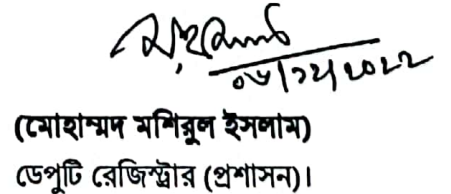 ০৮/১২/২০২২
(মোহাম্মদ মশিরুল ইসলাম)
ডেপুটি রেজিস্ট্রার (প্রশাসন)।